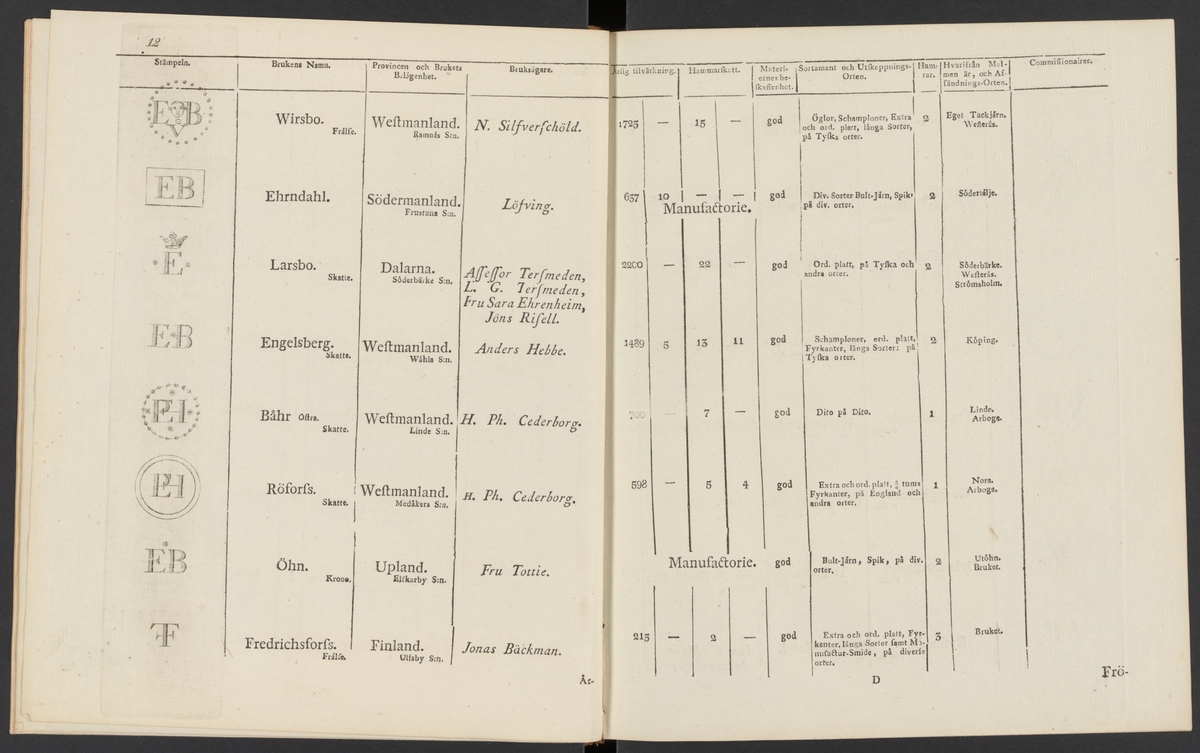 12
Stämpeln.
Brukens Namn.
Provincen och Brukets
Belägenhet.
Bruksägare.
Årlig tilvärkning.
Hammarskatt.
Materi-
ernes be-
skaffenhet.
Sortament och Utskeppnings-
Orten.
Ham-
rar.
Hvarifrån Mal-
men är, och Af-
sändnings-Orten.
Commissionairer.
E B
Wirsbo.
Frälse.
Westmanland.
Ramnäs S:n.
N. Silfverschöld.
1725 — 15 — god
Öglor, Schamploner, Extra
och ord. platt, långa Sorter,
på Tyska orter.
2
Eget Tackjärn.
Westerås.
EB
Ehrndahl.
Södermanland.
Frustuna S:n.
Löfving.
637 10 — — god
Manufactorie.
Div. Sorter Bult-Järn, Spik,
på div. orter.
2
Södertälje.
E
Larsbo.
Skatte.
Dalarna.
Söderbärke S:n.
Assessor Tersmeden,
L. G. Tersmeden,
Fru Sara Ehrenheim,
Jöns Risell.
2200 — 22 — god
Ord. platt, på Tyska och
andra orter.
2
Söderbärke.
Westerås.
Strömsholm.
E·B
Engelsberg.
Skatte.
Westmanland.
Wåhla S:n.
Anders Hebbe.
1489 5 13 11 god
Schamploner, ord. platt,
Fyrkanter, långa Sorter: på
Tyska orter.
2
Köping.
PH
Båhr Östra.
Skatte.
Westmanland.
Linde S:n.
H. Ph. Cederborg.
700 — 7 — god
Dito på Dito.
1
Linde.
Arboga.
PH
Röforss.
Skatte.
Westmanland.
Medåkers S:n.
H. Ph. Cederborg.
598 — 5 4 god
Extra och ord. platt, tums
Fyrkanter, på England och
andra orter.
1
Nora.
Arboga.
EB
Öhn.
Krono.
Upland.
Elfkarby S:n.
Fru Tottie.
Manufactorie. god
Bult-Järn, Spik, på div.
orter.
2
Utöhn.
Bruket.
Fredrichsforss.
Frälse.
Finland.
Ulfsby S:n.
Jonas Bäckman.
215 — 2 — god
Extra och ord. platt, Fyr-
kanter, långa Sorter samt Ma-
nufactur-Smide, på diverse
orter.
3
Bruket.
År-
D
Frö-